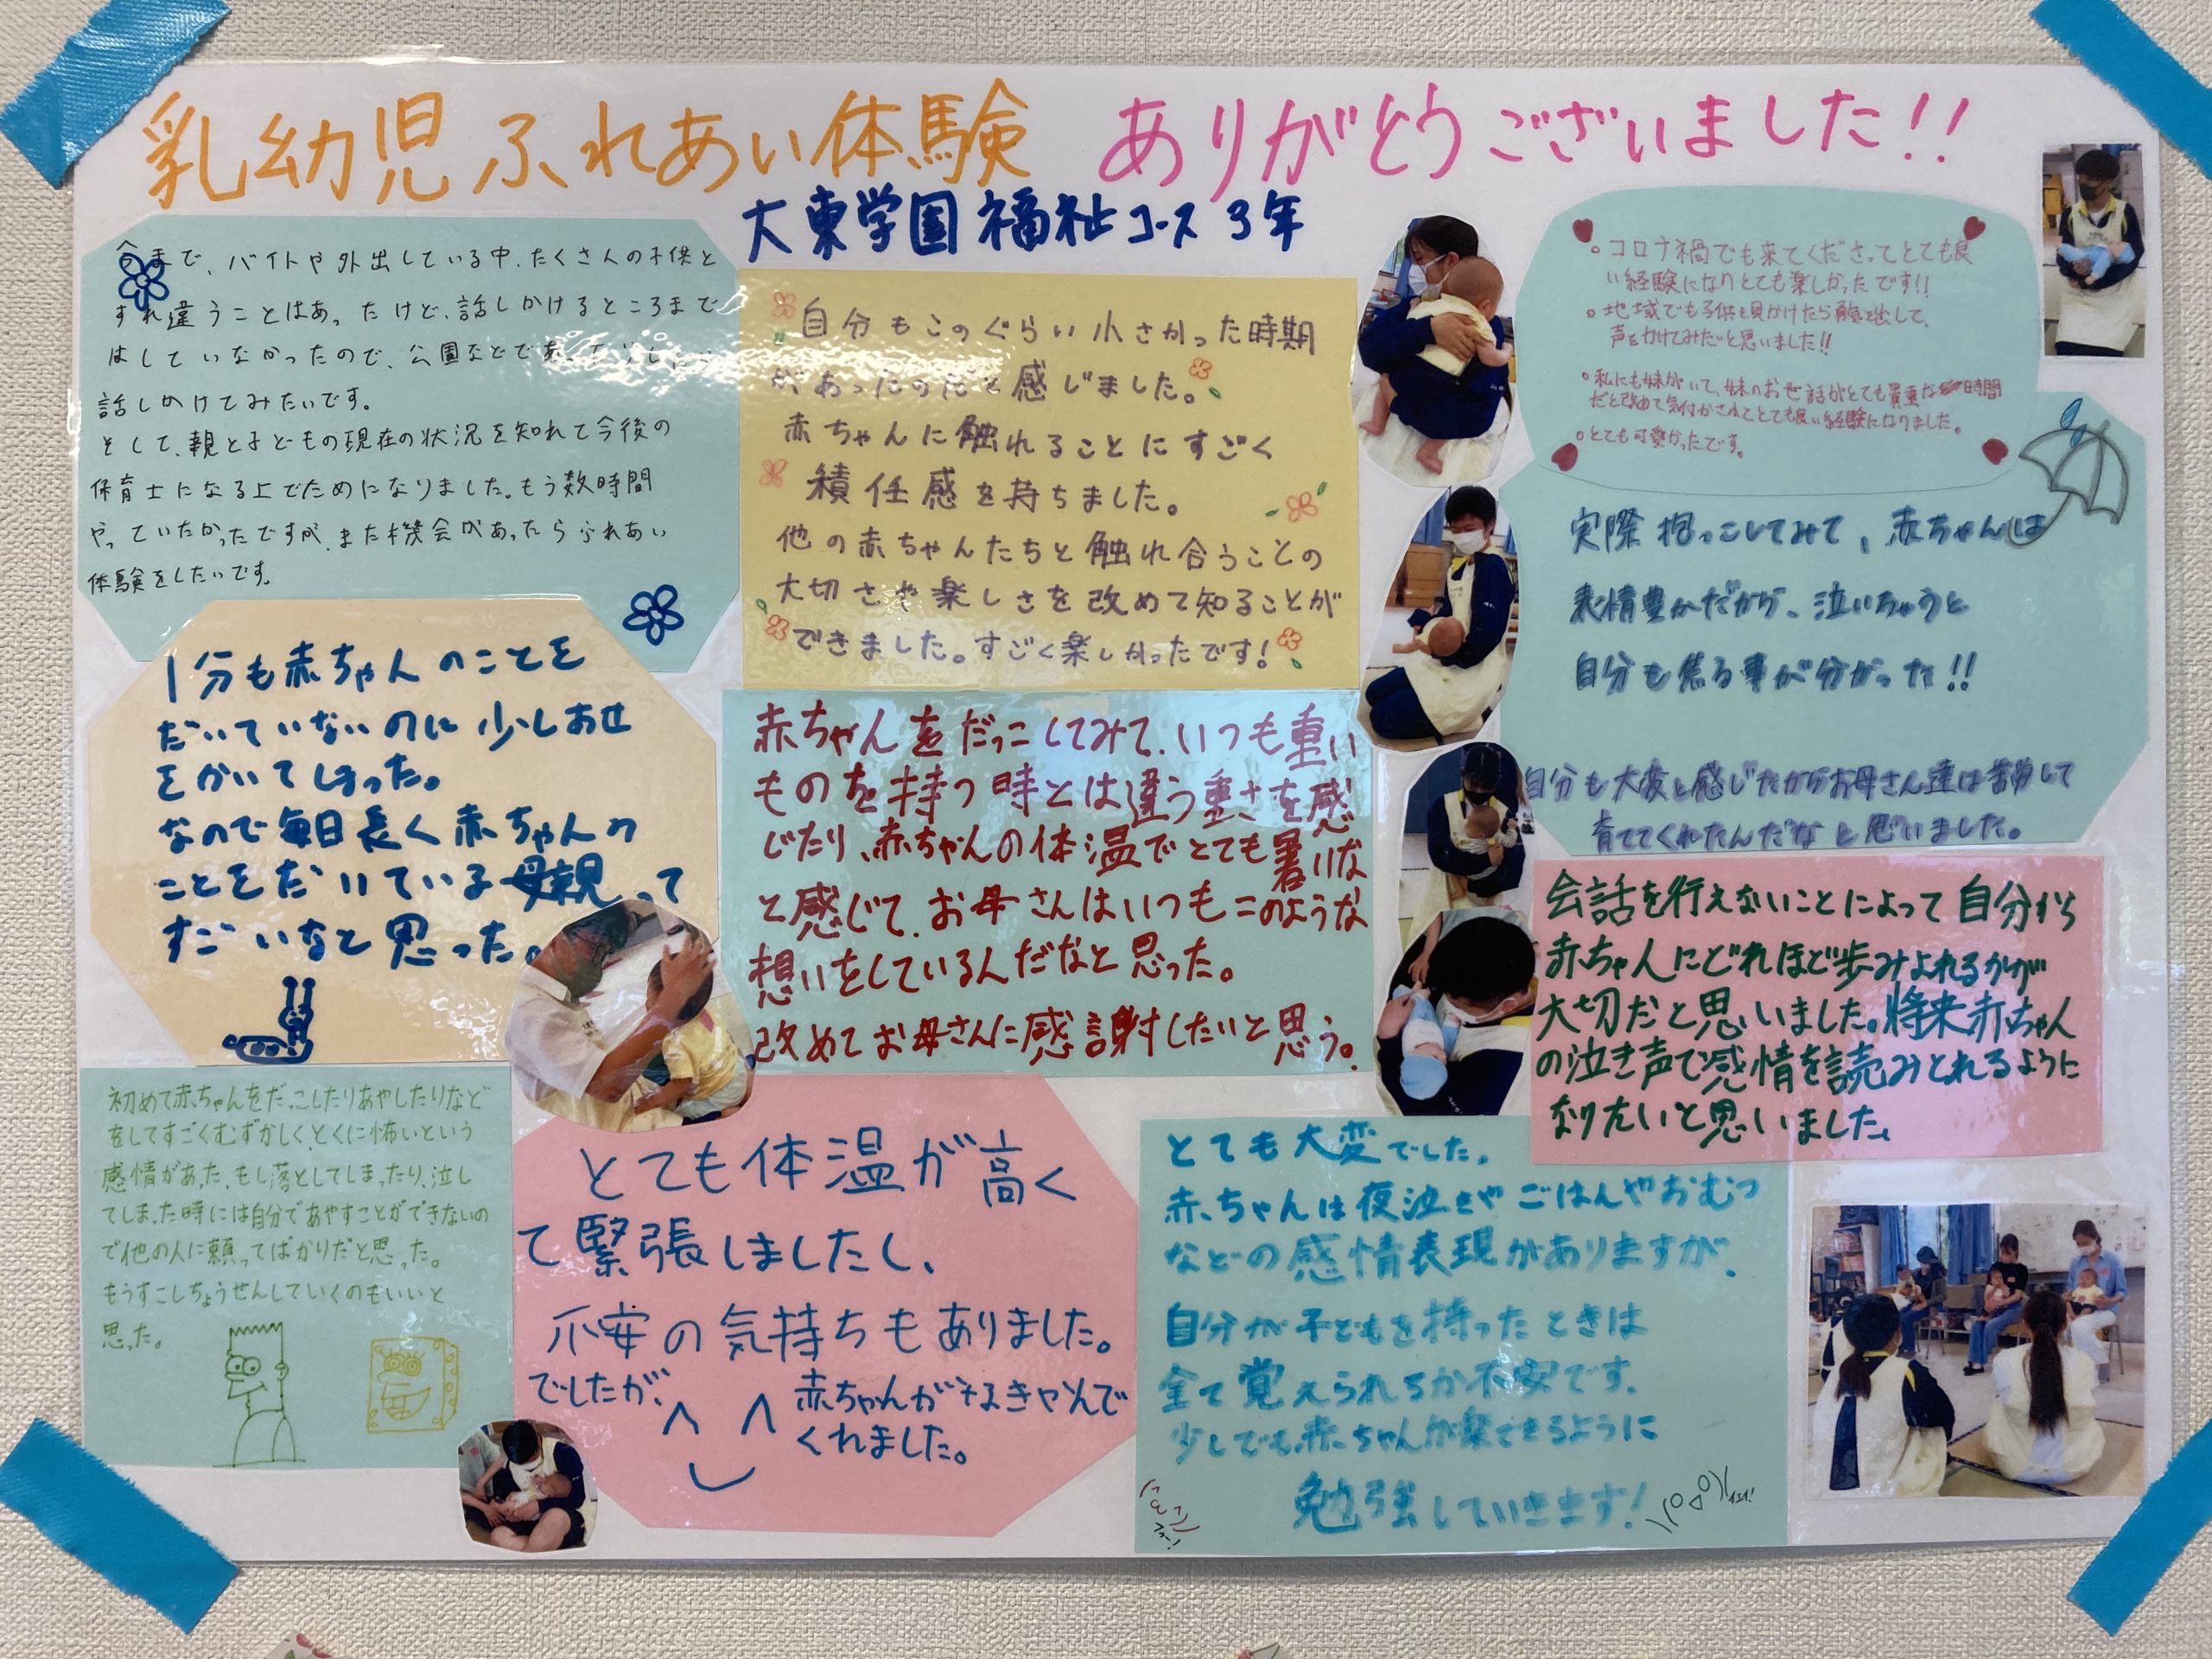 乳幼児ふれあい体験 ありがとうございました!!
大東学園 福祉コース 3年
今まで、バイトや外出している中、たくさんの子供と
すれ違うことはあったけど、話しかけるところまで
はしていなかったので、公園などで
話しかけてみたいです。
そして、親と子どもの現在の状況を知れて今後の
保育士になる上でためになりました。もう数時間
やっていたかったですが、また機会があったらふれあい
体験をしたいです。
自分もこのぐらい小さかった時期
があったのだと感じました。
赤ちゃんに触れることにすごく
積任感を持ちました。
他の赤ちゃんたちと触れ合うことの
大切さや楽しさを改めて知ることが
できました。すごく楽しかったです!
。コロナ禍でも来てくださってとても良
い経験になりとても楽しかったです!!
。地域でも子供を見かけたら勇気を出して、
声をかけてみたいと思いました!!
。私にも妹がいて、妹のお世話がとても貴重な時間
だと改めて気付かされてとても良い経験になりました。
。とても可愛かったです。
実際抱っこしてみて、赤ちゃんは
表情豊かだから、泣いちゃうと
自分も焦る事が分かった!!
自分も大変と感じたからお母さん達は苦労して
育ててくれたんだな と思いました。
1分も赤ちゃんのことを
だいていないのに少しあせ
をかいてしまった。
なので毎日長く赤ちゃんの
ことをだいている母親って
すごいなと思った。
赤ちゃんをだっこしてみて、いつも重い
ものを持つ時とは違う重さを感
じたり、赤ちゃんの体温でとても暑いな
と感じて、お母さんはいつもこのような
想いをしているんだなと思った。
改めてお母さんに感謝したいと思う。
会話を行えないことによって自分から
赤ちゃんにどれほど歩みよれるかが
大切だと思いました。将来赤ちゃん
の泣き声で感情を読みとれるように
なりたいと思いました。
初めて赤ちゃんをだっこしたりあやしたりなど
をしてすごくむずかしく、とくに怖いという
感情があった。もし落としてしまったり、泣し
てしまった時には自分であやすことができないの
で他の人に頼ってばかりだと思った。
もうすこしちょうせんしていくのもいいと
思った。
とても体温が高く
て緊張しましたし、
不安の気持ちもありました。
でしたが、
赤ちゃんが
くれました。
とても大変でした。
赤ちゃんは夜泣きやごはんやおむつ
などの感情表現がありますが、
自分が子どもを持ったときは
全て覚えられるか不安です。
少しでも赤ちゃんが楽できるように
勉強していきます!